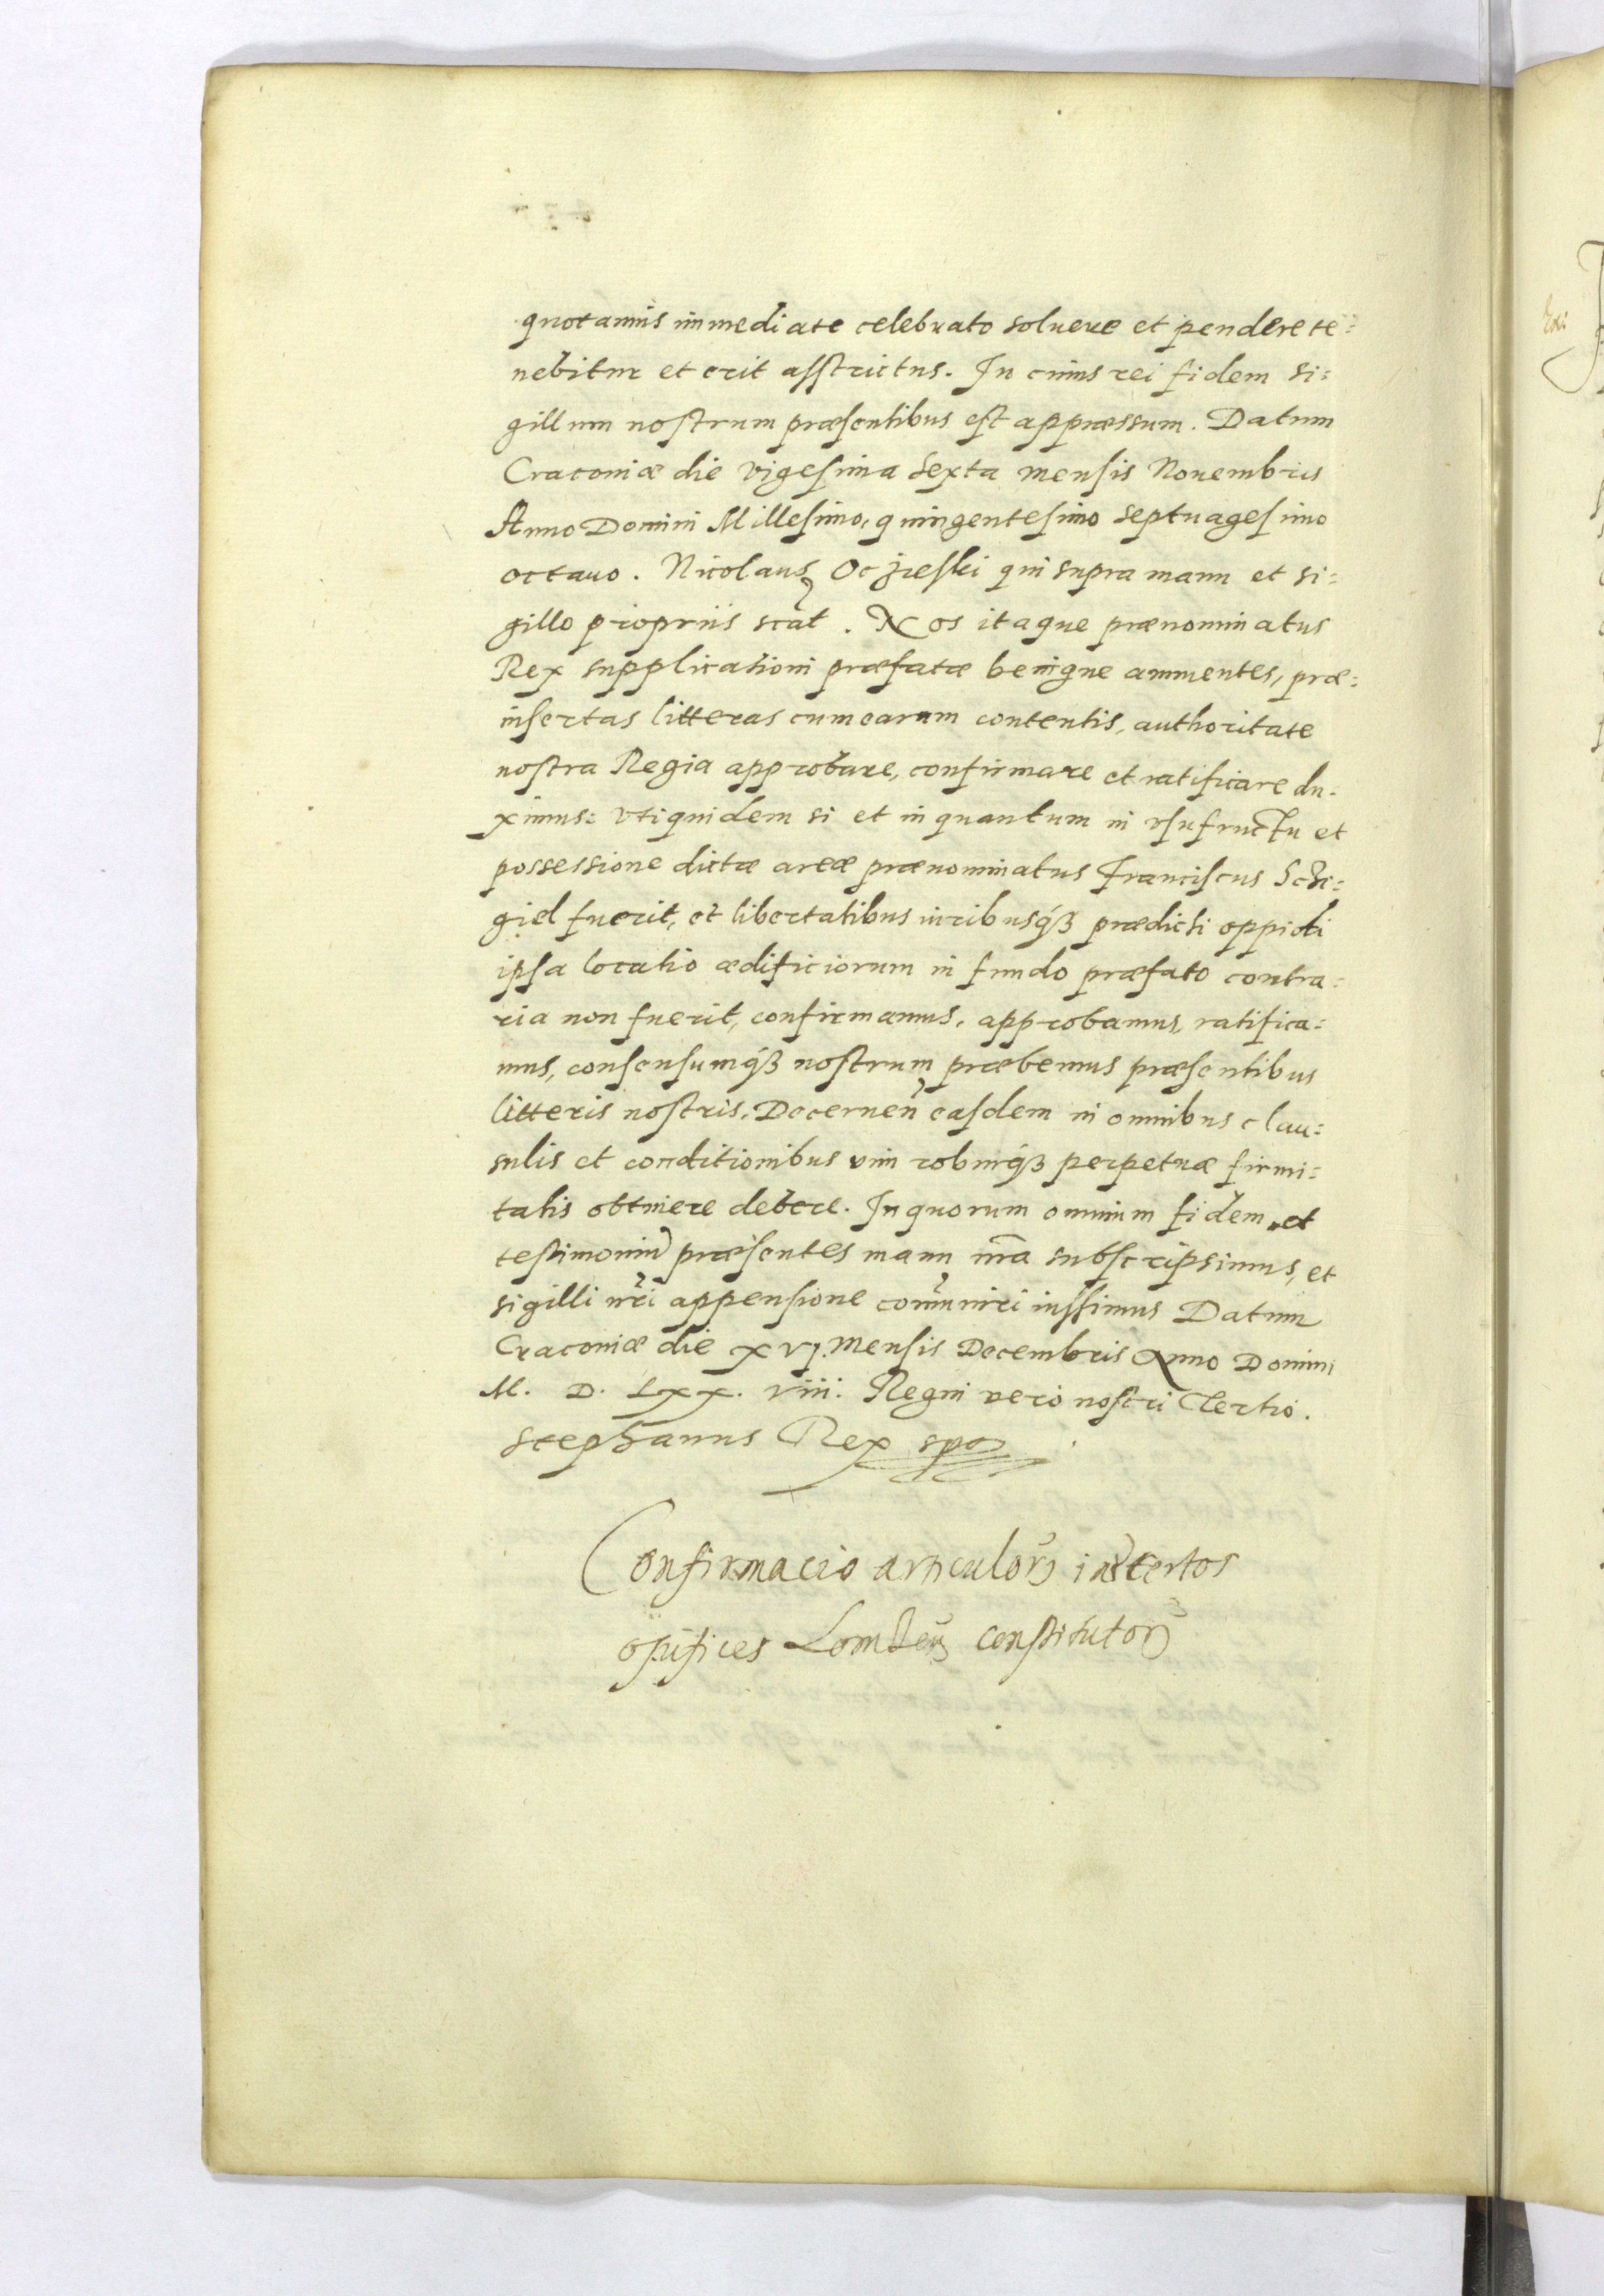 quotannis immediate celebrato soluere et pendere te:
nebitur et erit asstrictus. In cuius rei fidem si:
gillum nostrum præsentibus est appræssum. Datum
Cracouiæ die vigesima sexta mensis Nouembris
Anno Domini Millesimo, quingentesimo septuagesimo
octauo. Nicolaus qui supra manu et si:
gillo propriis scat. Nos itaque prænominatus
Rex supplicationi præfatæ benigne annuentes, præ:
insertas litteras cum earum contentis, authoritate
nostra Regia approbare, confirmare et ratificare du:
ximus: vti quidem si et in quantum in vsufructu et
possessione dictæ areæ prænominatus Franciscus Sche:
giel fuerit, et libertatibus iuribusq3 prædicti oppidi
ipsa locatio ædificiorum in fundo præfato contra:
ria non fuerit, confirmamus, approbamus, ratifica:
mus, consensumq3 nostrum præbemus præsentibus
litteris nostris. Decernen easdem in omnibus clau:
sulis et conditionibus vim roburq3 perpetuæ firmi:
tatis obtinere debere. In quorum omnium fidem et
testimoniũ præsentes manu nra subscripsimus, et
sigilli nri appensione comuniri iussimus Datum
Cracouiæ die xvj. mensis Decembris Anno Domini
M. D. Lxx. viii. Regni vero nostri Tertio.
Stephanus Rex spt
Confirmacio articulor in certos
opifices constitutor